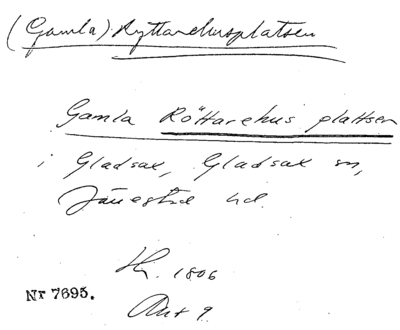 (Gamla) Ryttarehusplatsen
Gamla Röttarehus plattsen
i Gladsax, Gladsax sn,
Järrestad hd.
Hy. 1806
Akt 9
Nr 7695.